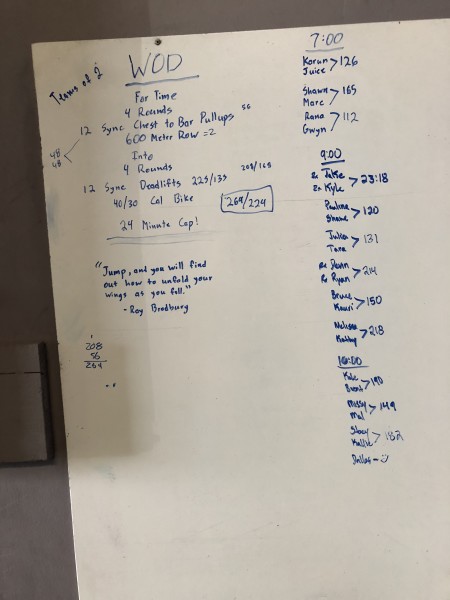 Teams of 2
WOD
For Time
4 Rounds
56
12 Sync Chest to Bar Pullups
600 Meter Row =2
48
48
Into
4 Rounds
208/168
12 Sync Deadlifts 225/155
40/30 Cal Bike
264/224
24 Minute Cap!
"Jump, and you will find
out how to unfold your
wings as you fall."
- Ray Bradbury
208
56
264
7:00
Karun
Juice > 126
Shawn
Marc > 165
Rana
Gwyn > 112
9:00
Rx Jake
Rx Kyle > 23:18
Pauline
Shane > 120
Julia
Tara > 131
Rx Devin
Rx Ryan > 214
Bruce
Kauri > 150
Melissa
Kathy > 218
10:00
Kyle
Brent > 190
Missy
Mal > 149
Stacy
Kallie > 182
Dallas -